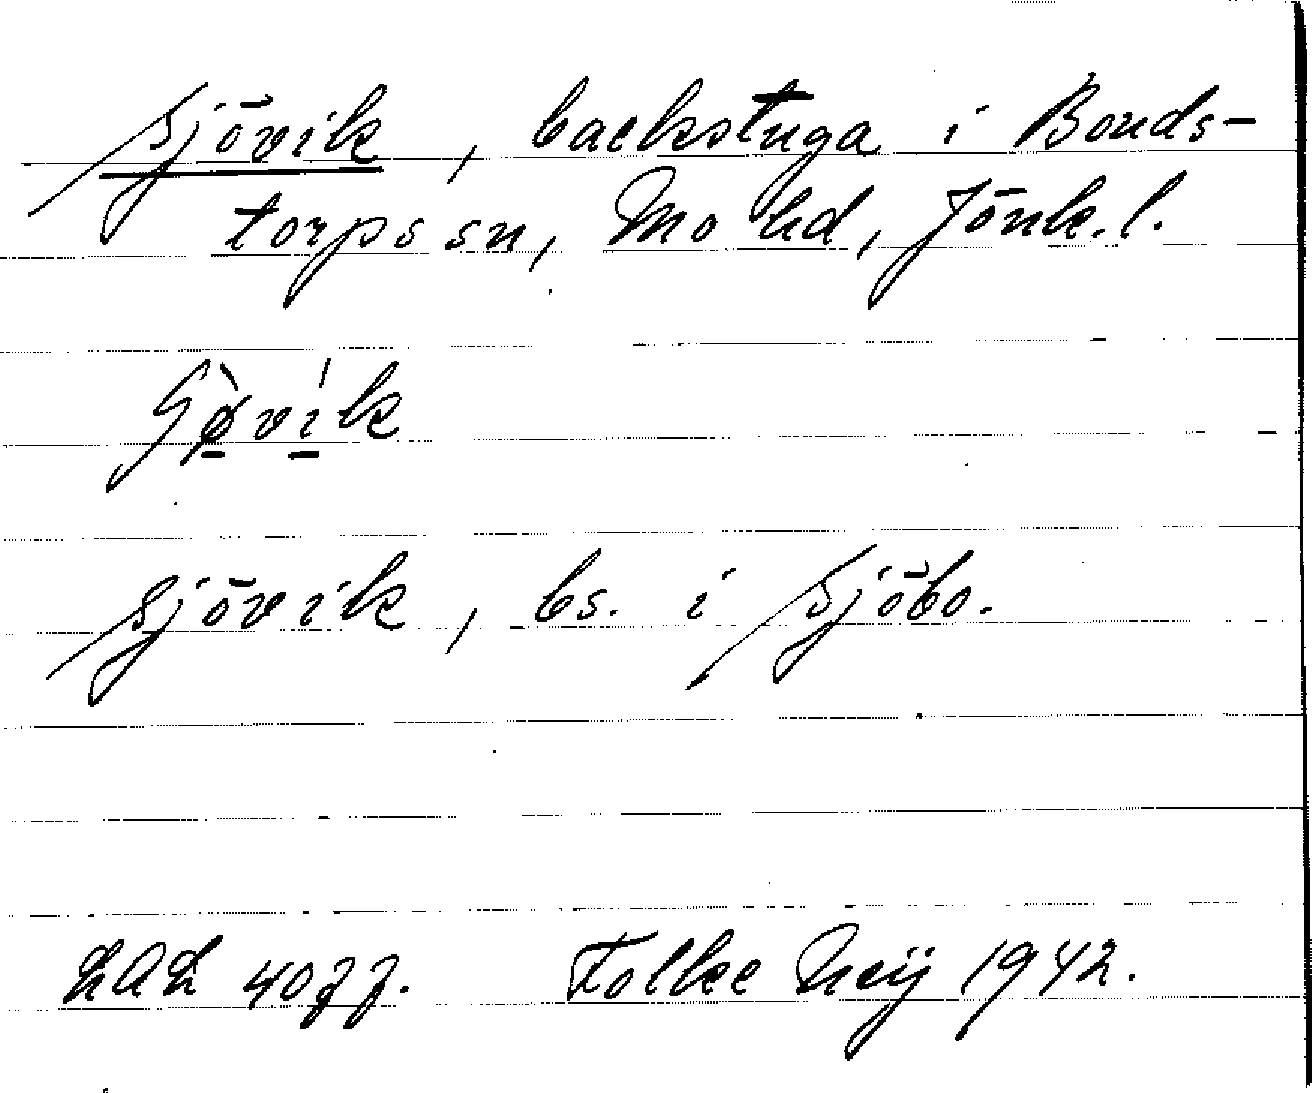 Sjövik, backstuga i Bonds-
torps sn, Mo hd, Jönk. l.
Sjövik, bs. i Sjöbo.
LAL 4077. Folke Neij 1942.